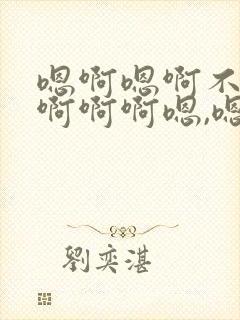 嗯啊嗯啊不
啊啊啊嗯,嗯
劉奕湛